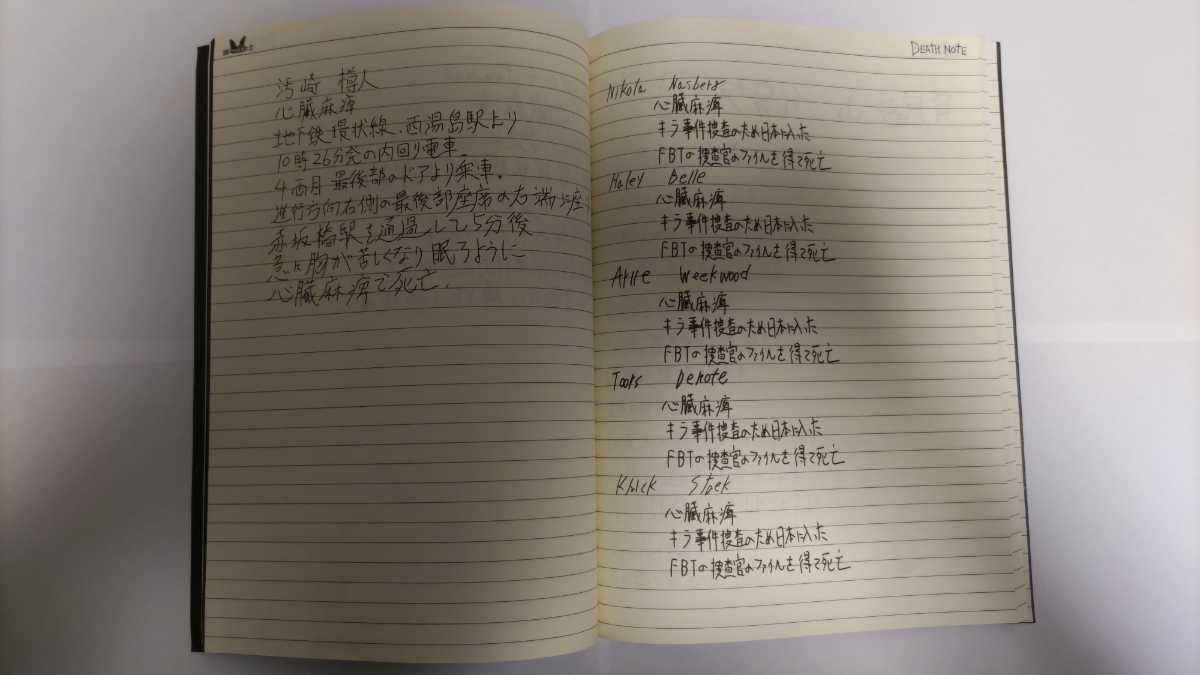 心臓麻痺
地下鉄環状線、西湯島駅より
10時26分発の内回り電車。
4両目最後部のドアより乗車。
進行方向右側の最後部座席の右端に座
赤坂橋駅を通過して5分後
急に胸が苦しくなり眠ろように
心臓麻痺で死亡。
DEATH NOTE
Nikola Nasberg
心臓麻痺
キラ事件捜査のため日本に入った
FBTの捜査官のファイルを得て死亡
Haley Belle
心臓麻痺
キラ事件捜査のため日本に入った
FBTの捜査官のファイルを得て死亡
Arire Weekwood
心臓麻痺
キラ事件捜査のため日本に入った
FBTの捜査官のファイルを得て死亡
Toors Denote
心臓麻痺
キラ事件捜査のため日本に入った
FBTの捜査官のファイルを得て死亡
心臓麻痺
キラ事件捜査のため日本に入った
FBTの捜査官のファイルを得て死亡